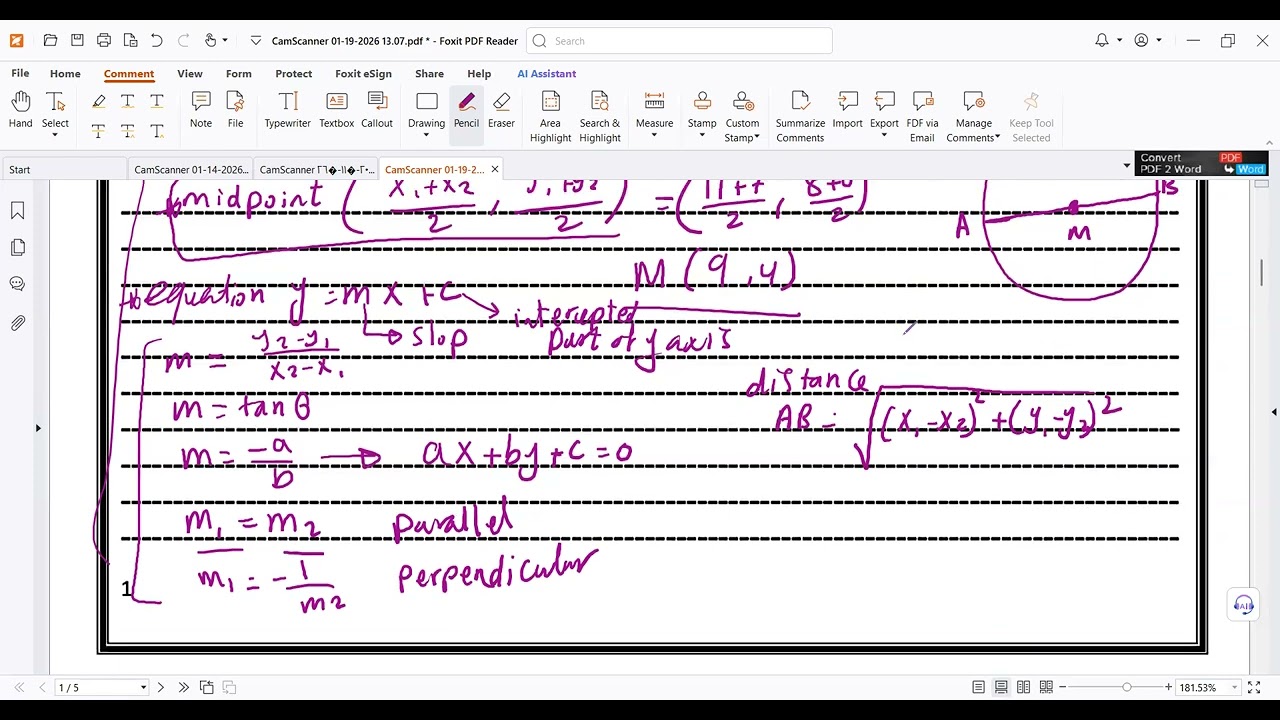 CamScanner 01-19-2026 13.07.pdf * - Foxit PDF Reader
Search
File Home Comment View Form Protect Foxit eSign Share Help AI Assistant
Hand Select Note File Typewriter Textbox Callout Drawing Pencil Eraser Area Highlight Search & Highlight Measure Stamp Custom Stamp Summarize Comments Import Export PDF via Email Manage Comments Keep Tool Selected
Start CamScanner 01-14-2026... CamScanner CamScanner 01-19-2... Convert PDF 2 Word PDF Word
midpoint ( x₁+x₂ / 2 , y₁+y₂ / 2 ) = ( 11+7 / 2 , 8+0 / 2 )
A M B
M (9,4)
equation y = mx + c intercepted
slop part of y axis
m = y₂-y₁ / x₂-x₁
distance
m = tan θ
AB = √(x₁-x₂)² + (y₁-y₂)²
m = -a / b → ax+by+c=0
m₁ = m₂ parallel
m₁ = - 1 / m₂ perpendicular
1
AI
1 / 5 181.53%